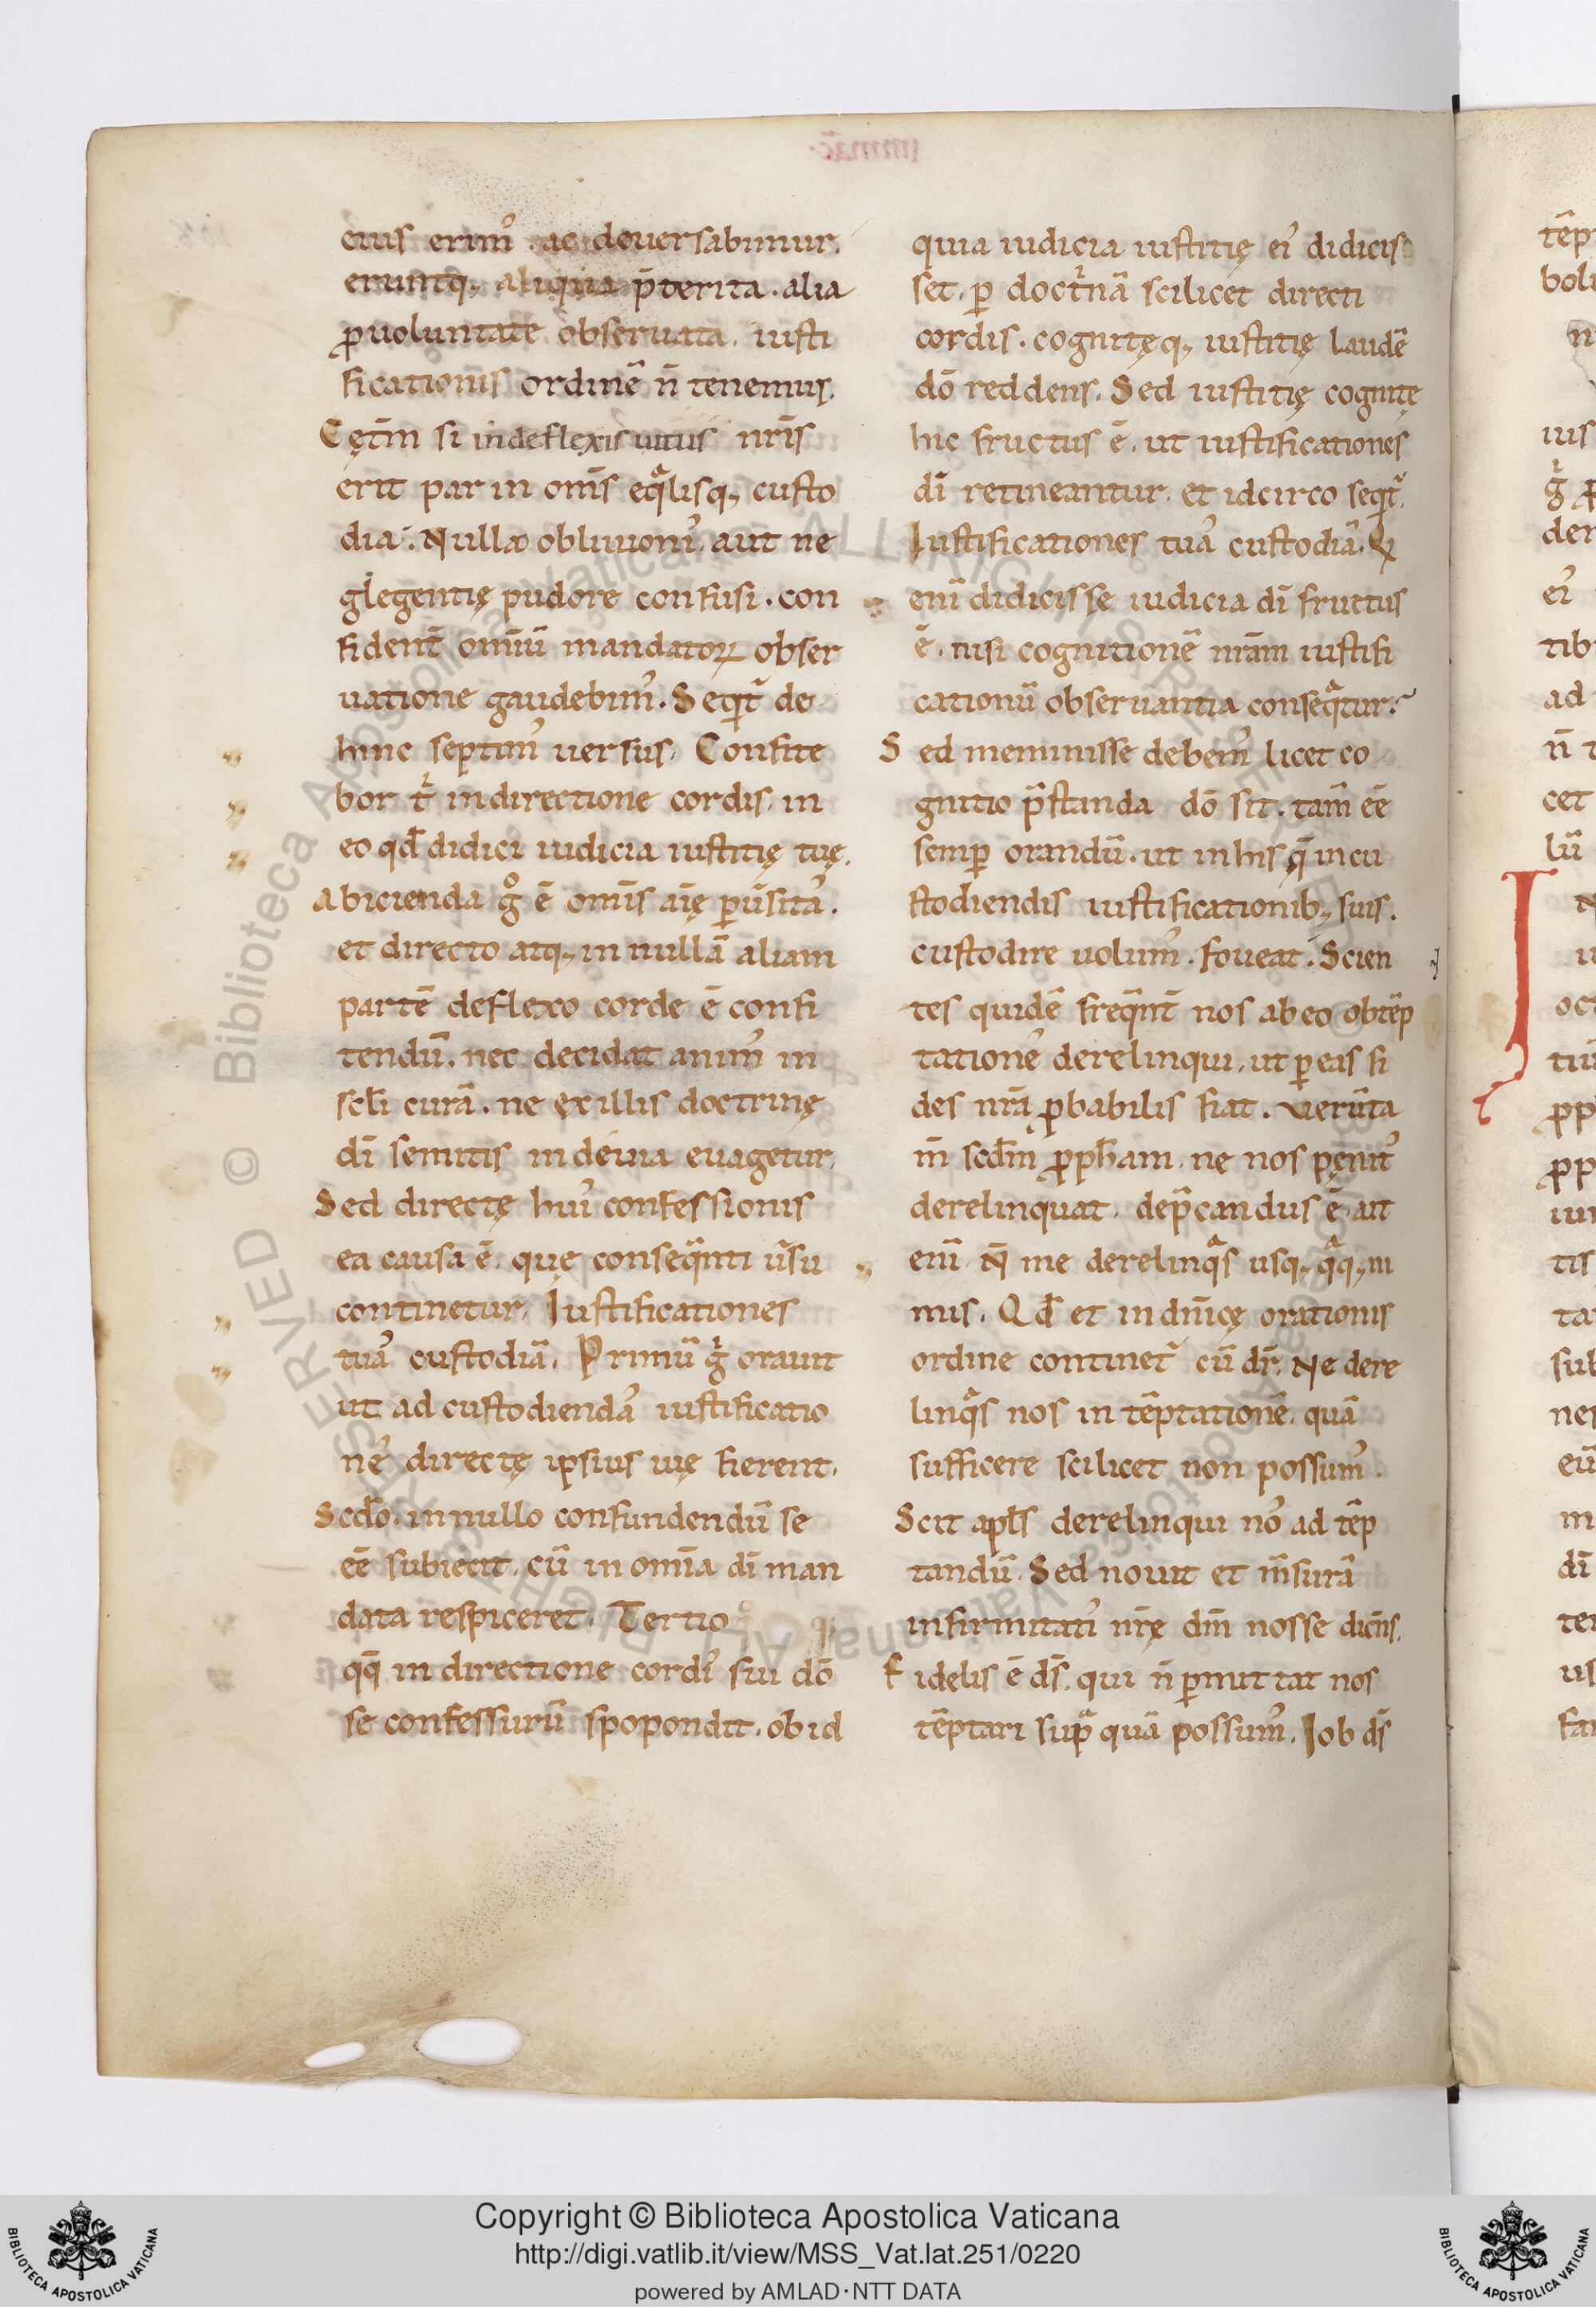 eius erim᾽. ac deuersabimur.
eruntq; aliqua p̄terita. alia
ꝓ uoluntate obseruata. iusti
ficationis ordinē n̄ tenemus.
Cęt̄m si indeflexis uitiis nr̄is
erit par in om̄s eq̄lisq; custo
dia. Nullæ obliuioni᾽ aut ne
glegentię pudore confusi. con
fident̄ om̄iū mandatoꝝ obser
uatione gaudebim᾽. Seqit̄ de
hinc septim᾽ uersus. Confite
bor t̄ in directione cordis. in
eo qd̄ didici iudicia iustitię tuę.
Abicienda gͦ ē om̄is aīę ꝑūsita᾽.
et directo atq; in nullā aliam
partē deflexo corde ē confi
tendū. nec decidat anim᾽ in
scl̄i curā. ne ex illis doctrinę
dī semitis in deuia euagetur.
Sed directę hui᾽ confessionis
ea causa ē. quę conseq̄nti ūsu
continetur. Iustificationes
tua᾽ custodiā. Primū ḡ orauit
ut ad custodienda᾽ iustificatio
ne᾽ directę ipsius uię fierent.
Scd̄o. in nullo confundendū se
eē subiecit. cū in om̄ia dī man
data respiceret. Tertio
qq̄ in directione cordi᾽ sui dō
se confessurū spopondit. ob id
quia iudicia iustitię ei᾽ didicis
set. ꝑ doct̄nā scilicet directi
cordis. cognitęq; iustitię laudē
dō reddens. Sed iustitię cognitę
hic fructus ē. ut iustificationes
dī retineantur. et idcirco seqit̄.
Iustificationes tua᾽ custodiā. Q
enī didicisse iudicia dī fructus
ē. nisi cognitionē nr̄am iustifi
cationū obseruantia conseq̄tur?
Sed meminisse debem᾽ licet co
gnitio p̄standa dō sit. tam̄ eē
semꝑ orandū. ut in his q̄ in cu
stodiendis iustificationib; suis.
custodire uolum᾽. foueat. Scien
tes quidē freq̄nt̄ nos ab eo ob tēp
tatione᾽ derelinqui. ut ꝑ eas fi
des nr̄a ꝓbabilis fiat. Uerūta
m̄ scd̄m ꝓph̄am. ne nos penit᾽
derelinquat. dep̄candus ē. ait
enī. N̄ me derelinq̄s usq; q̄q; ni
mis. Qd̄ et in dn̄icę orationis
ordine continet̄ cū dr̄. Ne dere
linq̄s nos in tēptationē. quā
sufficere scilicet non possum᾽.
Scit apl̄s derelinqui no᾽ ad tēp
tandū. Sed nouit et m̄surā
infirmitati᾽ nr̄ę dm̄ nosse dicn̄s.
Fidelis ē ds̄. qui n̄ ꝑmittat nos
tēptari sup̄ quā possum᾽. Iob ds̄
Copyright © Biblioteca Apostolica Vaticana
http://digi.vatlib.it/view/MSS_Vat.lat.251/0220
powered by AMLAD·NTT DATA